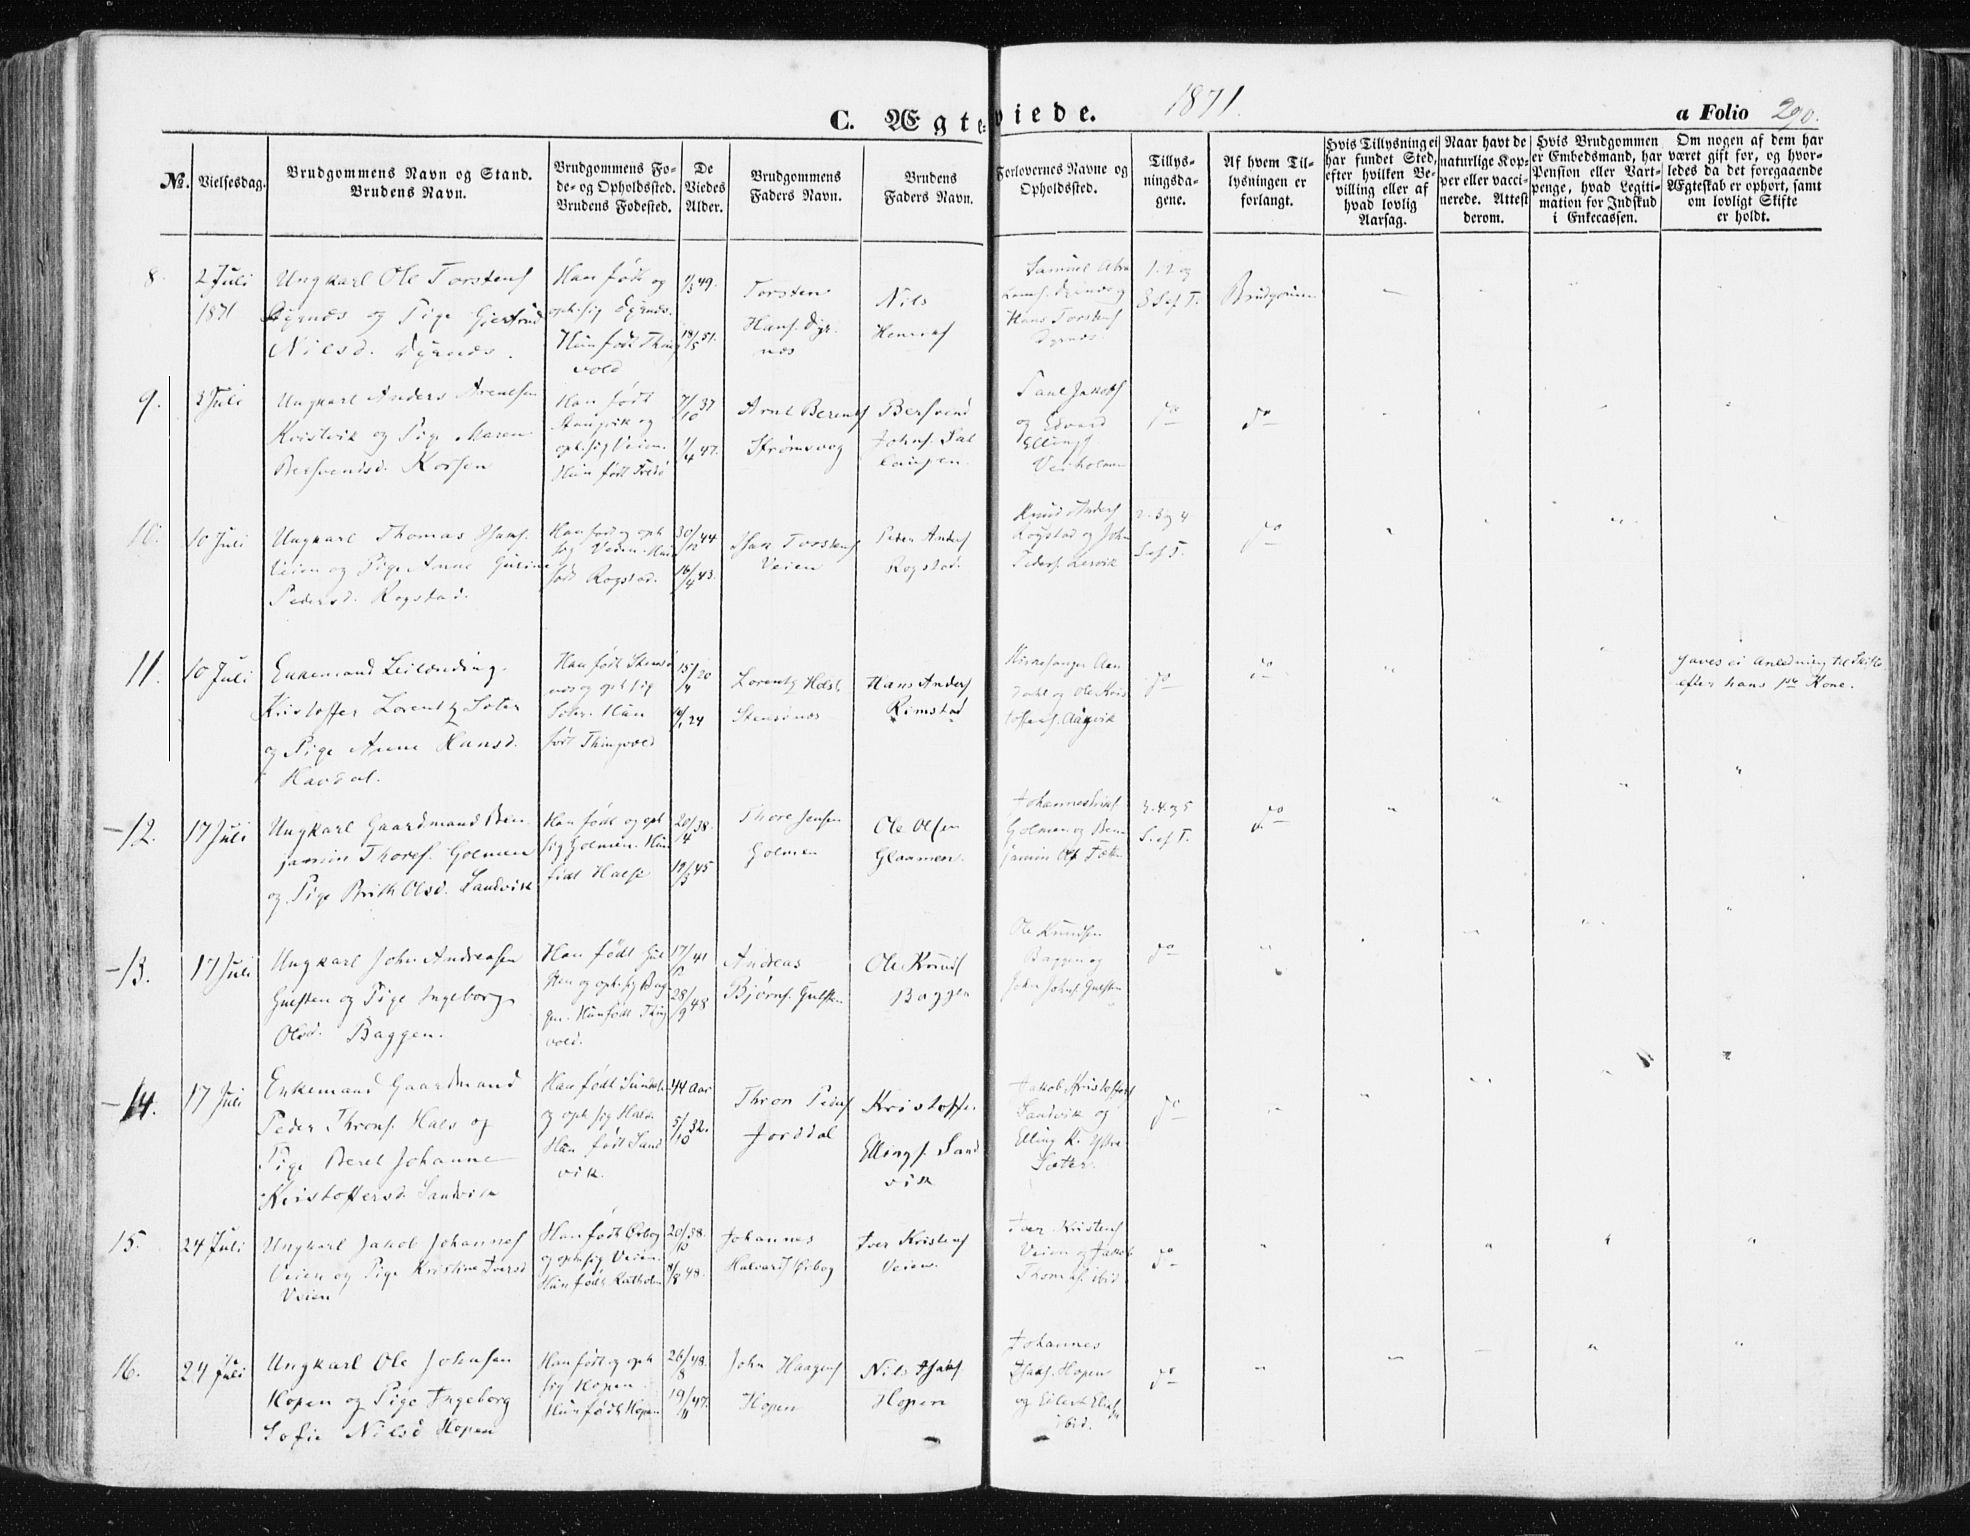 C. Ægteviede. 1871. a Folio 290.
No. Vielsesdag. Brudgommens Navn og Stand. Brudens Navn. Brudgommens Fode- og Opholdssted. Brudens Fødested. De Viedes Alder. Brudgommens Faders Navn. Brudens Faders Navn. Forlovernes Navne og Opholdssted. Tillysningsdagene. Af hvem Tillysningen er forlangt. Hvis Tillysning ei har fundet Sted, efter hvilken Bevilling eller af hvad lovlig Aarsag. Naar havt de naturlige Kopper eller vaccinerede. Attest derom. Hvis Brudgommen er Embedsmand, har Pension eller Vartpenge, hvad Legitimation for Indskud i Enkecassen. Om nogen af dem har været gift for, og hvorledes da det foregaaende Ægteskab er ophort, samt om lovligt Skifte er holdt.
8. 2 Juli 1871
Ungkarl Ole Torstens
Dyrnæs og Pige Gjertrud
Nilsd. Dyrnæs.
Han født og
oph. sig Dyrnæs.
Hun født Thing
vold
49.
18/5 51.
Torsten
Hans. Dyr
næs
Nils
Samuel Abra
Hans Torstens
Dyrnæs
1. 2 og
3 S. ef T.
Brudgommen
9. 3 Juli
Ungkarl Anders Arentsen
Kvistvik og Pige Maren
Berhvendsd. Korsen
Han født
Stangvik og
oph. sig Veien.
Hun født
7/10 37
1/4 47.
Arnt Berents
Strømsvog
Johns.
Paul Jakobs
og Edvard
Ellings
do
do
10. 10 Juli
Ungkarl Thomas Hans.
Veien og Pige Anne Guline
Pedersd. Rogstad.
Han fød og oph
sig Veien. Hun
født Rogstad.
30/12 44
16/4 43.
Torstens
Veien
Peder Anders
Rogstad.
Knud Anders
Rogstad og John
Peders. Lervik
2. 3 og 4
S. ef T.
do
11. 10 Juli
Enkemand Leilænding
Kristoffer Lorentz Sæter
og Pige Anne Hansd.
Havdal.
Han født
næs og oph sig
Sæter. Hun
født Thingvold
15/4 20
24
Lorentz Holst.
Hans Anders
Rimstad
Kirkesanger Aan
dahl og Ole Kris
toffers. Aakvik
do
do
Gaves ei Anledning til Skifte
efter hans 1ste Kone.
12. 17 Juli
Ungkarl Gaardmand Ben
jamin Thores. Golmen
og Pige Brith Olsd. Sandvik
Han født og oph
sig Golmen. Hun
født Halse
20/4 38.
17/3 45
Thore Jensen
Golmen
Ole Olsen
Glaamen.
Golmen og Ben
jamin Ols
3. 4. og 5
S. ef T.
do
13. 17 Juli
Ungkarl John Andreasen
Gulsten og Pige Ingeborg
Olsd. Baggen.
Han født Gul
sten og oph. sig Bag
gen. Hun født Thing
vold.
17/12 41
28/9 48
Andreas
Bjørns. Gulsten
Ole Knuds
Baggen
Ole Knudsen
Baggen og
John Johns. Gulsten
do
14. 17 Juli
Enkemand Gaardmand
Peder Throns. Hals og
Pige Beret Johanne
Kristoffersd. Sandvik
Han født Sundalen
og oph sig Hals.
Hun født Sand
vik.
44 Aar
5/10 32.
Thron Peders
Jorddal
Kristoffer
Ellings. Sand
vik
Jakob Kristoffers
Sandvik og
Elling K. Ystre
Sæter.
do
15. 24 Juli
Ungkarl Jakob Johannes
Veien og Pige Kristine Iversd
Veien
Han født Ørbog
og oph sig Veien.
Hun født
20/10 38.
8/8 48.
Johannes
Halvards Ørbog
Iver Kristens
Veien.
Iver Kristens
Veien og Jakob
Thomas. ibid
do
16. 24 Juli
Ungkarl Ole Johnsen
Hopen og Pige Ingeborg
Sofie Nilsd Hopen
Han født og oph
sig Hopen.
Hun født Hopen
26/8 48.
19/11 47.
John Haagens
Hopen
Nils Isaks.
Hopen
Johannes
Isaks. Hopen
og Eilert Elias
ibid.
do